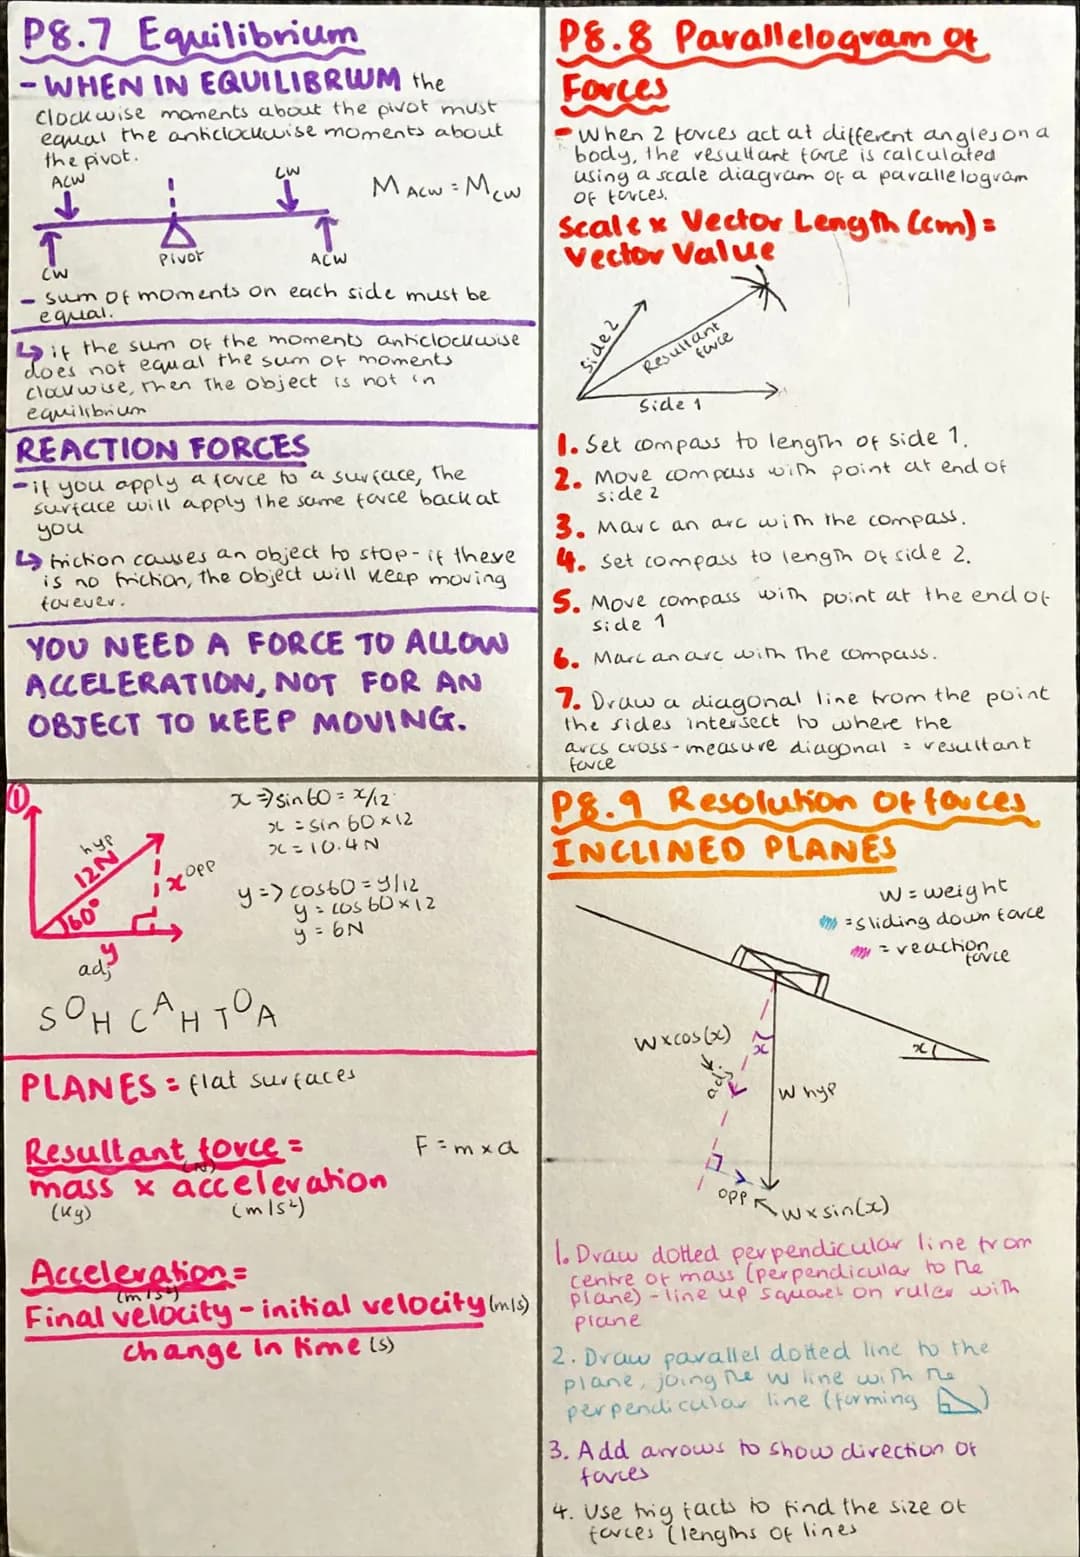 P8.7 Equilibrium
- WHEN IN EQUILIBRIUM the
clockwise moments about the pivot must
equal the anticlockwise moments about
the pivot.
ACW
CW
M ACW = M CW
CW
Pivot
ACW
- sum of moments on each side must be
equal.
↳ if the sum of the moments anticlockwise
does not equal the sum of moments
clockwise, then the object is not in
equilibrium
REACTION FORCES
- if you apply a force to a surface, the
surface will apply the same force back at
you
↳ friction causes an object to stop - if there
is no friction, the object will keep moving
forever.
YOU NEED A FORCE TO ALLOW
ACCELERATION, NOT FOR AN
OBJECT TO KEEP MOVING.
P8.8 Parallelogram of
Forces
- When 2 forces act at different angles on a
body, the resultant force is calculated
using a scale diagram of a parallelogram
of forces.
Scale x Vector Length (cm) =
Vector Value
Side 2
Resultant
force
Side 1
1. Set compass to length of side 1.
2. Move compass with point at end of
side 2
3. Marc an arc with the compass.
4. Set compass to length of side 2.
5. Move compass with point at the end of
side 1
6. Marc an arc with the compass.
7. Draw a diagonal line from the point
the sides intersect to where the
arcs cross - measure diagonal = resultant
force
①
hyp
12N
x opp
60°
y
adj
x => sin60 = x/12
x = sin 60 x 12
x = 10.4N
y => cos60 = y/12
y = cos 60 x 12
y = 6N
SOH CAH TOA
PLANES = flat surfaces
Resultant force =
(N)
F = m x a
mass x acceleration
(kg) (m/s²)
Acceleration =
(m/s²)
Final velocity - initial velocity (m/s)
change in time (s)
P8.9 Resolution of forces
INCLINED PLANES
W = weight
= sliding down force
= reaction
force
W x cos(x)
adj
x
x
W hyp
opp
W x sin(x)
1. Draw dotted perpendicular line from
centre of mass (perpendicular to the
plane) - line up square on ruler with
plane
2. Draw parallel dotted line to the
plane, joing the W line with the
perpendicular line (forming )
3. Add arrows to show direction of
forces
4. Use trig facts to find the size of
forces (lengths of lines